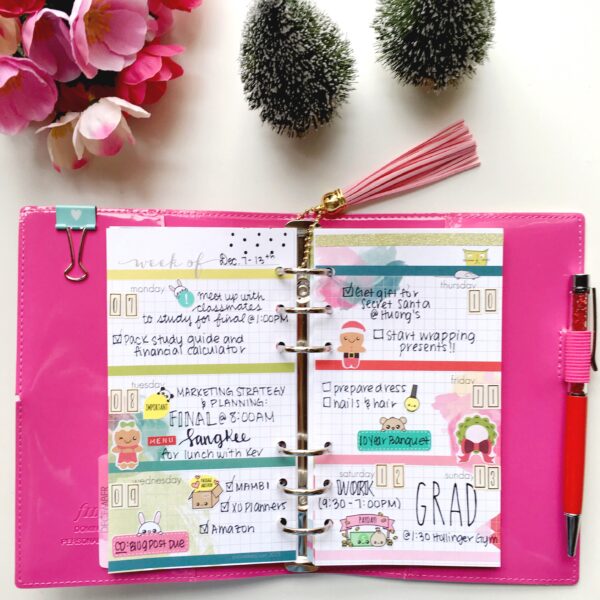 week of Dec. 7-13th
monday
07
meet up with
classmates
to study for final @ 1:00PM
Pack study guide and
financial calculator
tuesday
08
IMPORTANT
MARKETING STRATEGY
& PLANNING:
FINAL @ 8:00AM
MENU SangKee
for lunch with Kev
wednesday
09
MAMBI
XO Planners
Amazon
CD: Blog Post Due
thursday
10
Get gift for
Secret Santa
@ Huong's
start wrapping
presents!!
friday
11
prepare dress
nails & hair
10 Year Banquet
saturday
12
WORK
(9:30-7:00PM)
PAYDAY!
sunday
13
GRAD
@ 1:30 Hollinger Gym